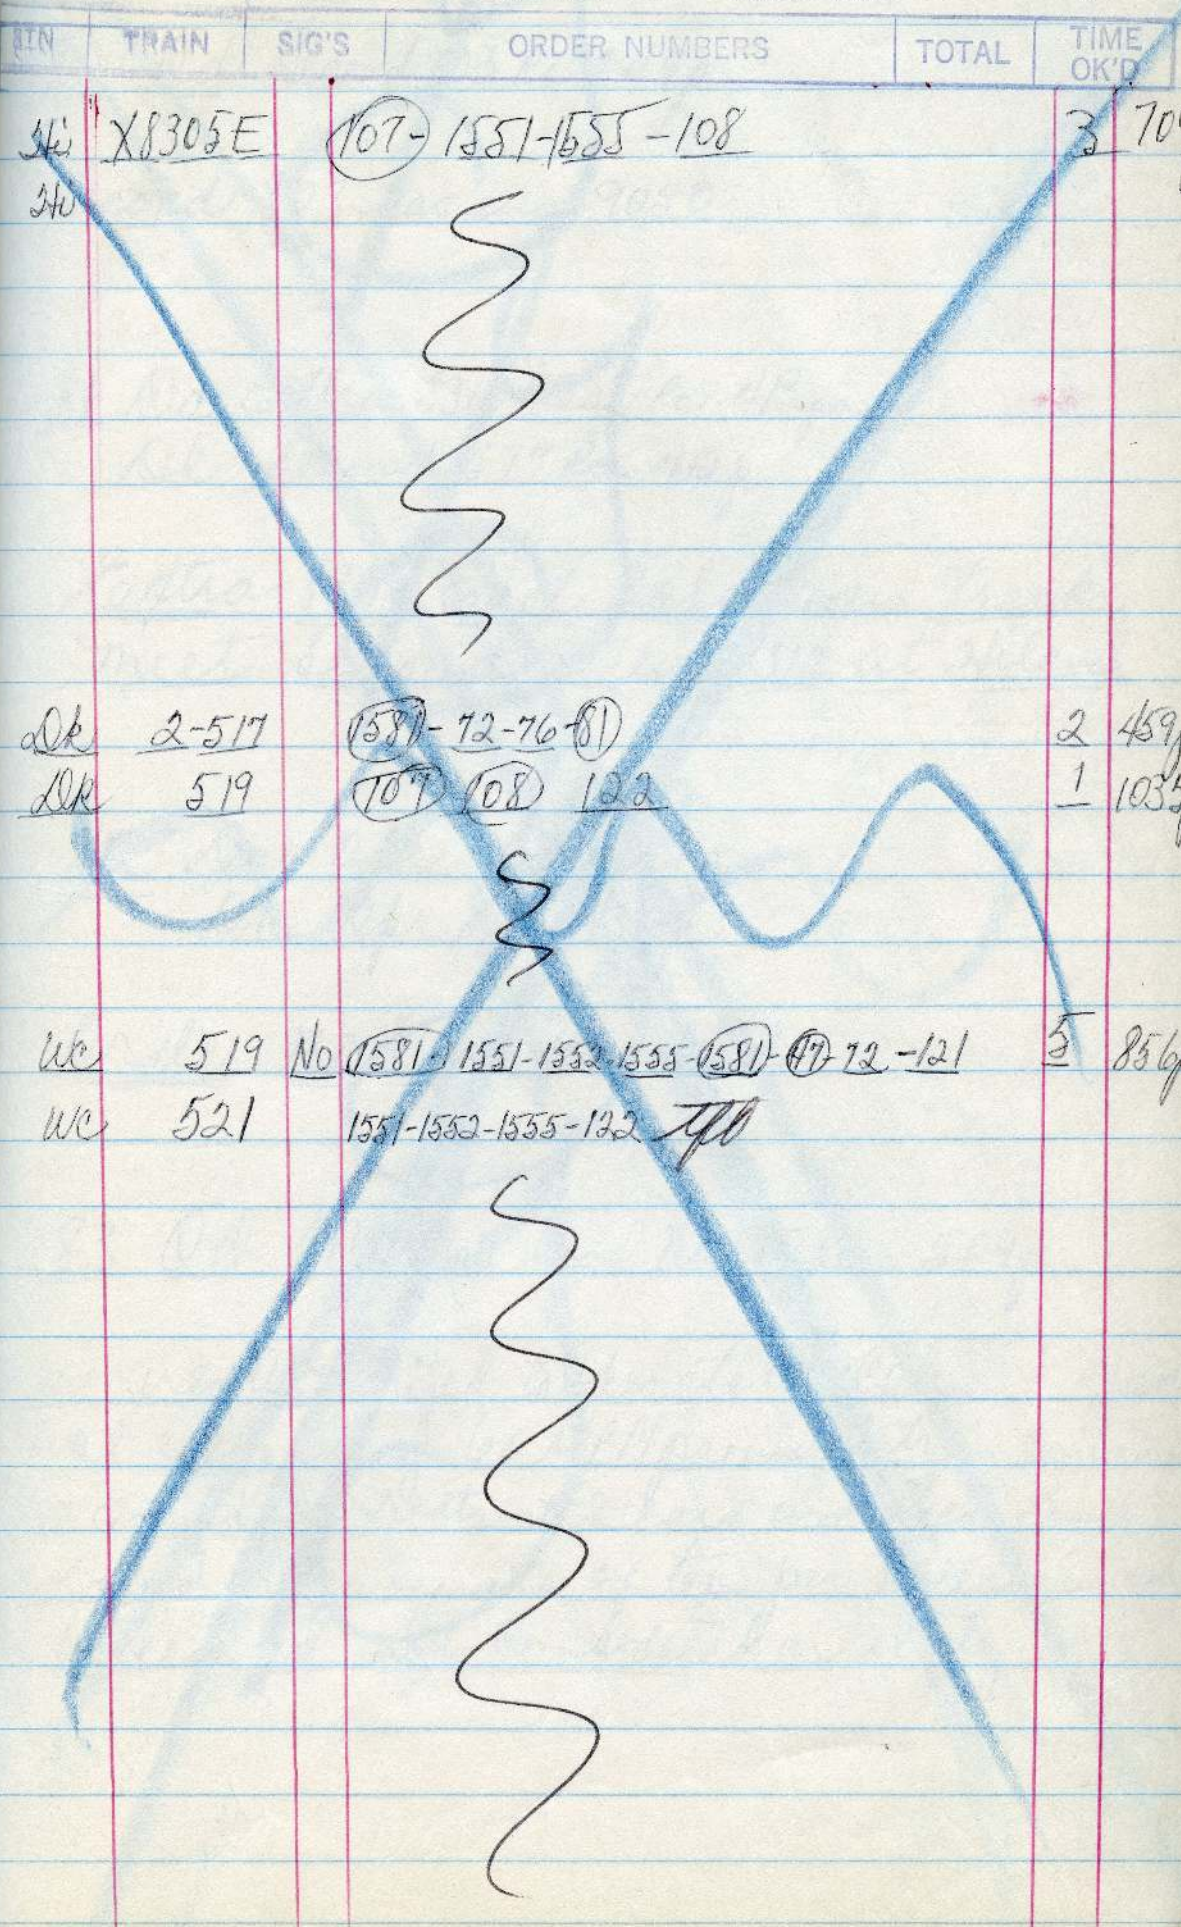 STN TRAIN SIG'S ORDER NUMBERS TOTAL TIME OK'D
Hi X8305E 107- 1551-1555-108 3 70
Hi
Dk 2-517 1581-72-76-81 2 459
Dk 519 107 108 122 1 1035
WC 519 No 1581- 1551-1552-1555-1581-47-72-121 5 856
WC 521 1551-1552-1555-122